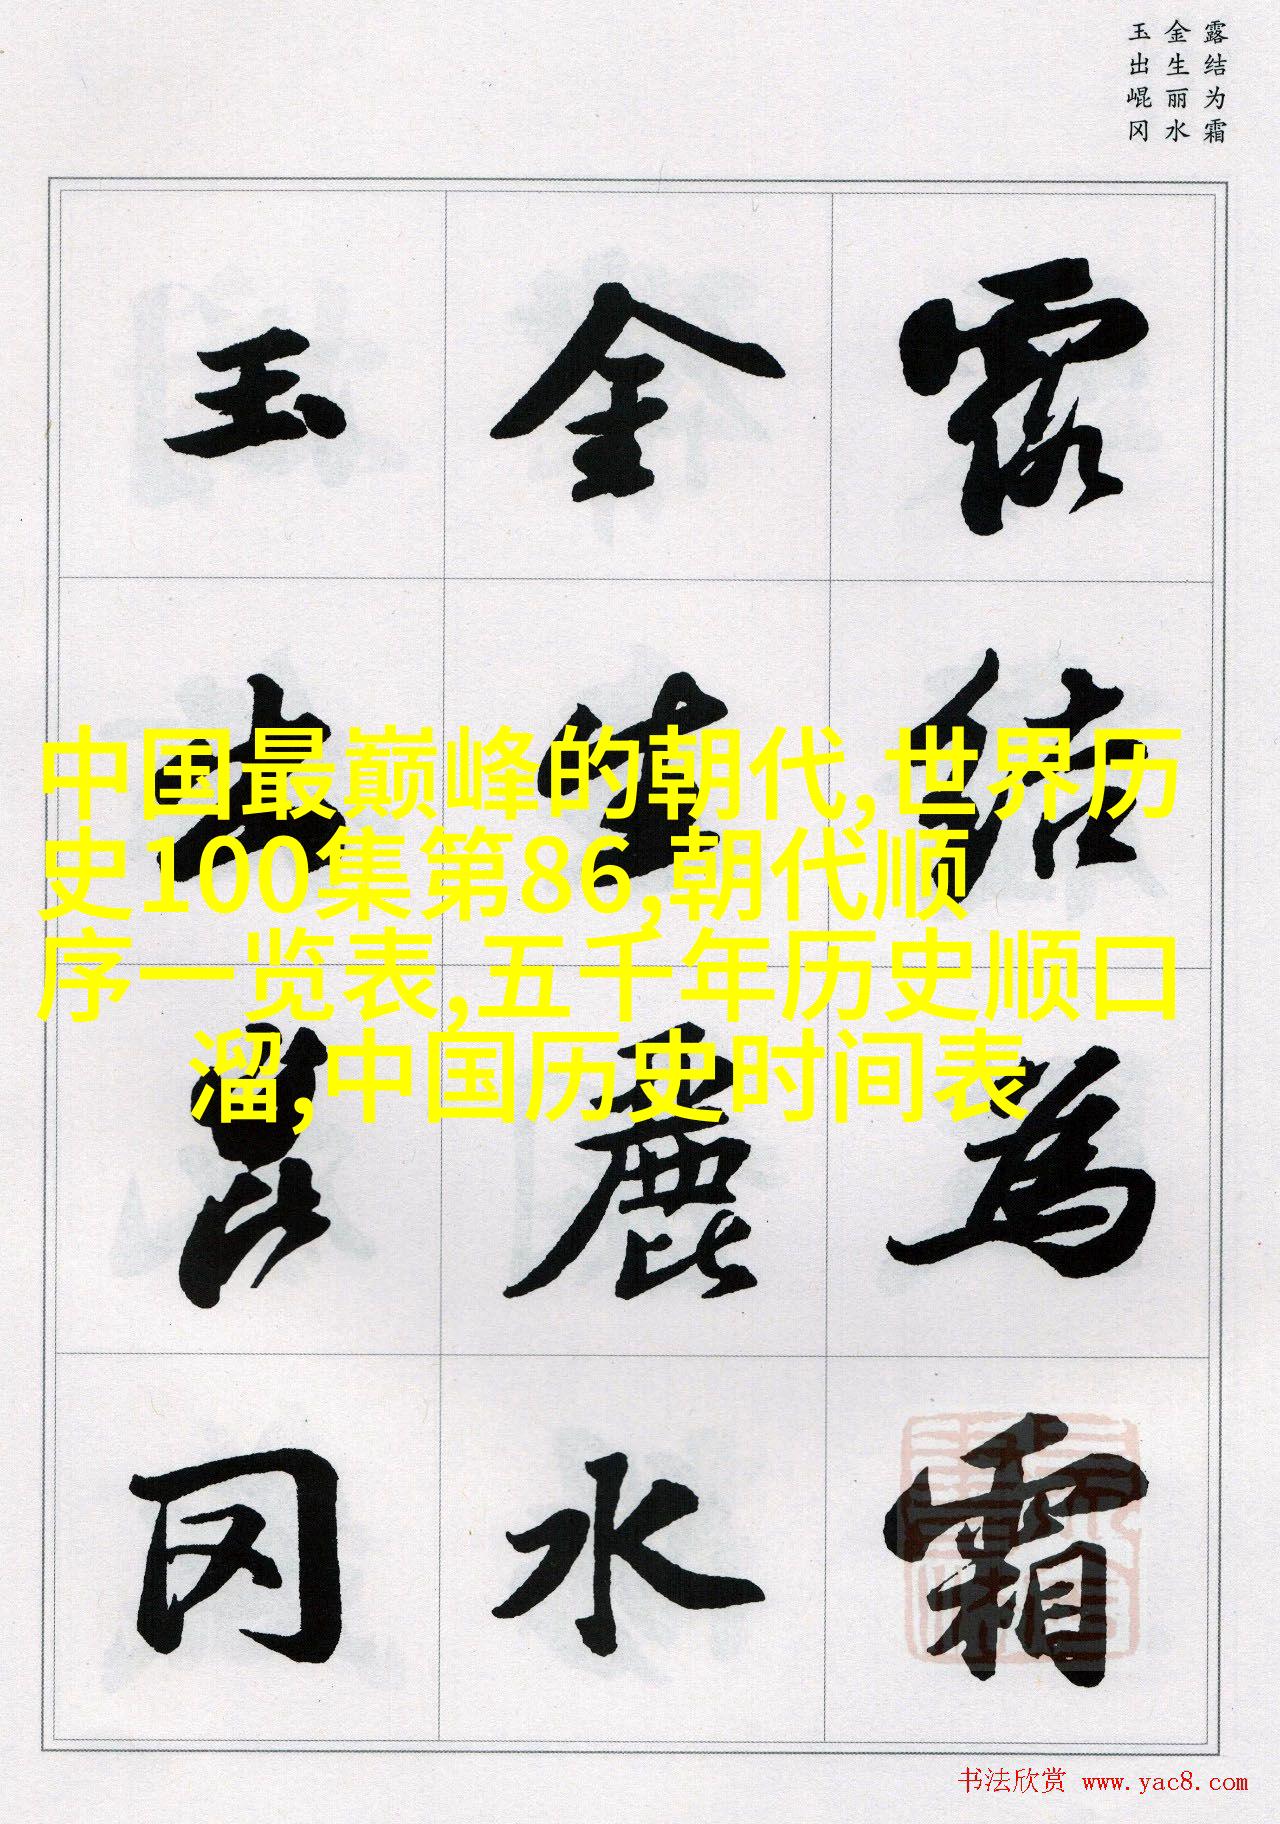 露结为霜
金生丽水
玉出崐冈
露結為霜
金生麗水
玉出崑冈
中国最巅峰的朝代,世界历
史100集第86,朝代顺
序一览表,五千年历史顺口
溜,中国历史时间表
书法欣赏 www.yac8.com